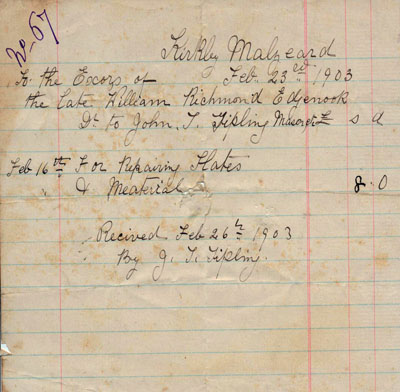 No 67
Kirkby Malzeard
To the Excors of Feb. 23rd 1903
the late William Richmond Edgenook
Dr to John. T. Tipling Mason £ s d
Feb 16th For Repairing Slates
& Meaterial 8. 0
Recived Feb 26th 1903
By J. T. Tipling.